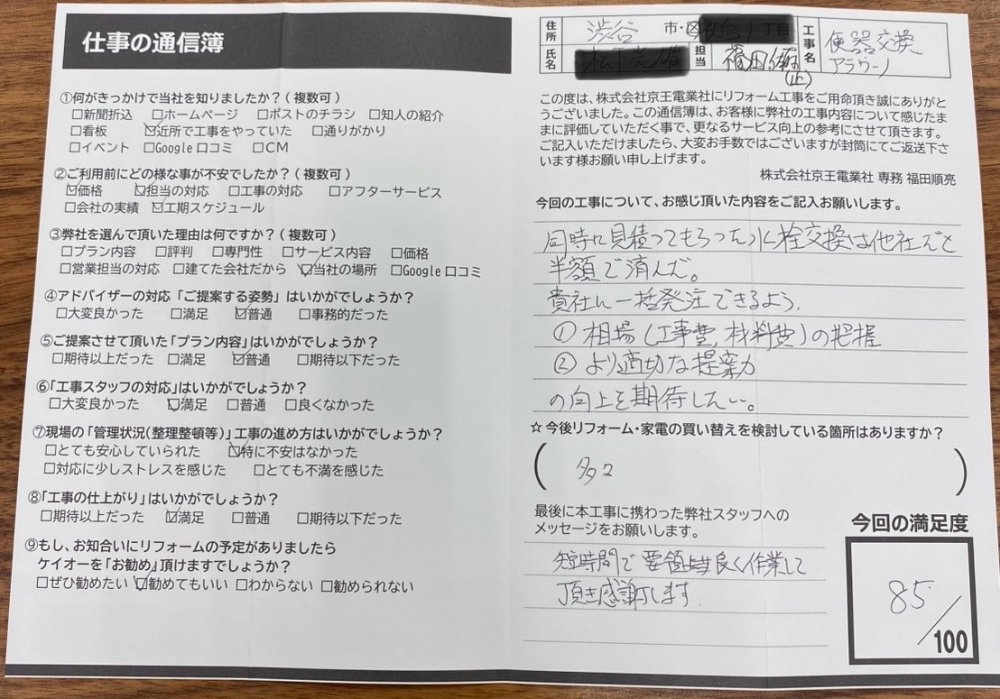 仕事の通信簿
①何がきっかけで当社を知りましたか？(複数可)
□新聞折込 □ホームページ □ポストのチラシ □知人の紹介
□看板 ☑近所で工事をやっていた □通りがかり
□イベント □Google口コミ □CM
②ご利用前にどの様な事が不安でしたか？(複数可)
☑価格 ☑担当の対応 □工事の対応 □アフターサービス
□会社の実績 ☑工期スケジュール
③弊社を選んで頂いた理由は何ですか？(複数可)
□プラン内容 □評判 □専門性 □サービス内容 □価格
□営業担当の対応 □建てた会社だから ☑当社の場所 □Google口コミ
④アドバイザーの対応「ご提案する姿勢」はいかがでしょうか？
□大変良かった □満足 ☑普通 □事務的だった
⑤ご提案させて頂いた「プラン内容」はいかがでしょうか？
□期待以上だった □満足 ☑普通 □期待以下だった
⑥「工事スタッフの対応」はいかがでしょうか？
□大変良かった ☑満足 □普通 □良くなかった
⑦現場の「管理状況(整理整頓等)」工事の進め方はいかがでしょうか？
□とても安心していられた ☑特に不安はなかった
□対応に少しストレスを感じた □とても不満を感じた
⑧「工事の仕上がり」はいかがでしょうか？
□期待以上だった ☑満足 □普通 □期待以下だった
⑨もし、お知合いにリフォームの予定がありましたら
ケイオーを「お勧め」頂けますでしょうか？
□ぜひ勧めたい ☑勧めてもいい □わからない □勧められない
住所 渋谷 市・区 丁目
氏名 担当 福田
工事名 便器交換
アラウーノ
この度は、株式会社京王電業社にリフォーム工事をご用命頂き誠にありがと
うございました。この通信簿は、お客様に弊社の工事内容について感じたま
まに評価していただく事で、更なるサービス向上の参考にさせて頂きます。
ご記入いただけましたら、大変お手数ではございますが封筒にてご返送下さ
います様お願い申し上げます。
株式会社京王電業社 専務 福田順亮
今回の工事について、お感じ頂いた内容をご記入お願いします。
同時に見積ってもらった水栓交換は他社だと
半額で済んだ。
貴社に一括発注できるよう、
① 相場(工事費,材料費)の把握
② より適切な提案力
の向上を期待したい。
☆今後リフォーム・家電の買い替えを検討している箇所はありますか？
(多々)
最後に本工事に携わった弊社スタッフへの
メッセージをお願いします。
短時間で要領良く作業して
頂き感謝します
今回の満足度
85/100